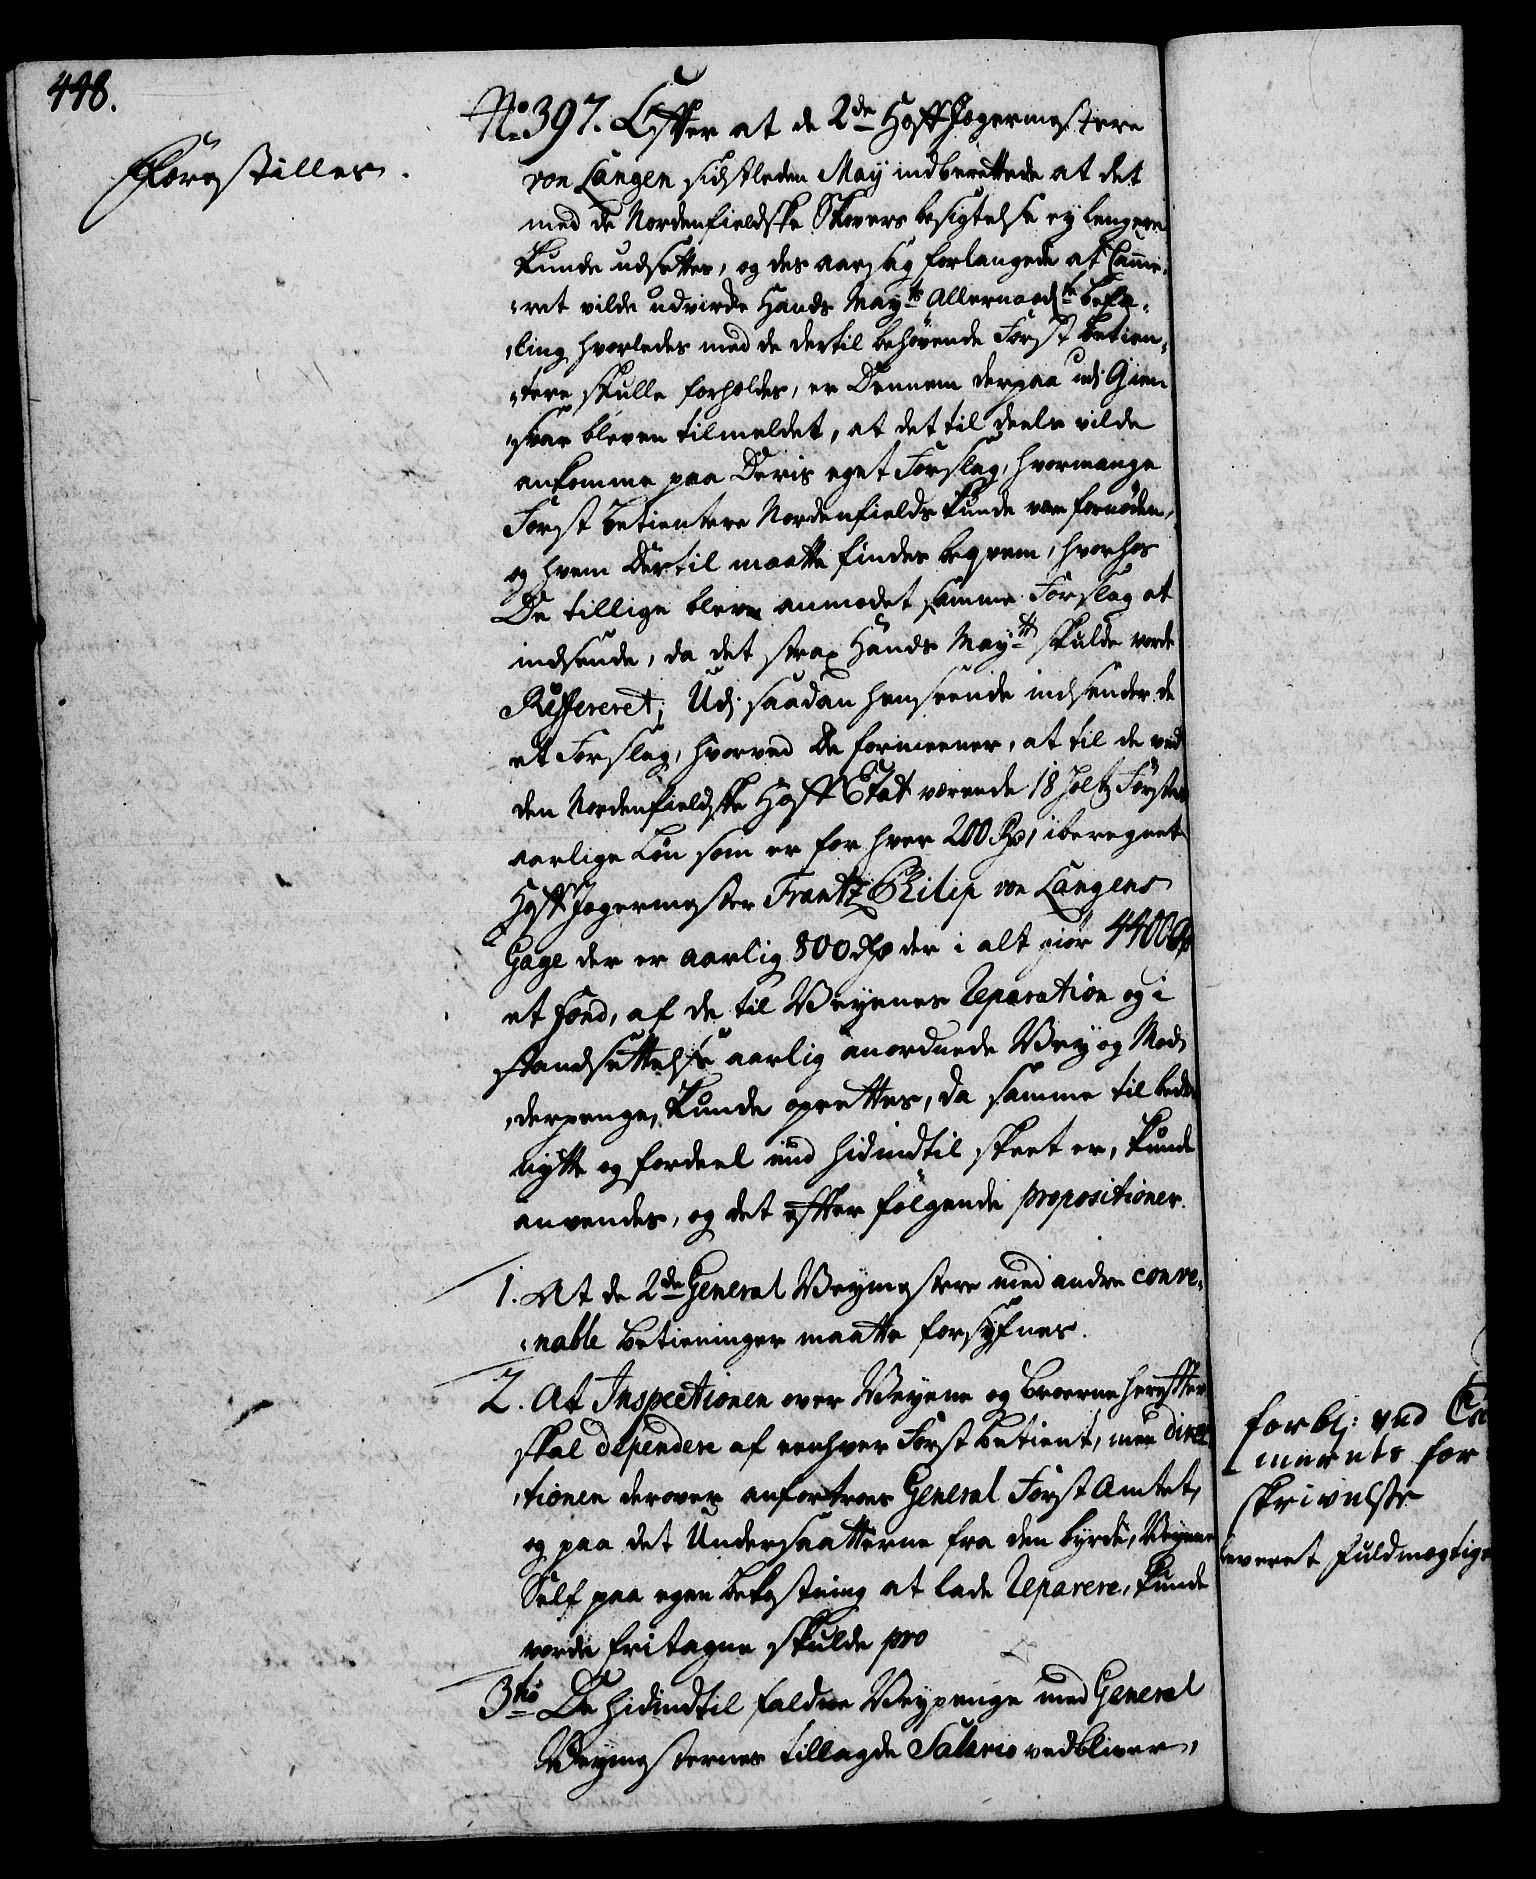 448.
Forestilles.
No: 397. Efter at de 2de Hoff Jægermestere
von Langen sidstleden May indberettede at det
med de Nordenfieldske Skovers besigtelse ey lengere
kunde udsettes, og des aarsag forlangede at Camme-
ret vilde udvirke Hands Mayts Allernaadste befa-
ling hvorledes med de dertil behövende Forst betien-
tere skulle forholdes, er Dennem derpaa udj Gien
svar bleven tilmeldet, at det til deels vilde
ankomme paa Deris eget Forslag, hvormange
Forst betientere Nordenfields kunde være fornöden,
og hvem dertil maatte findes beqvem, hvorhos
De tillige blev anmodet samme Forslag at
indsende, da det strax Hands Mayts skulde vorde
Refereret; Udj saadan henseende indsender de
et Forslag, hvorved De formeener, at til de ved
den Nordenfieldske Hoff Etat værende 18 Holtz Förster
aarlige Lön som er for hver 200 Rdr, iberegnet
Hoff Jægermester Frantz Philip von Langens
Gage der er aarlig 800 Rdr der i alt giör 4400 Rdr
et Fond, af de til Veyenes Reparation og i
standsættelse aarlig anordnede Vey og Mod
derpenge, kunde oprettes, da samme til bedre
nytte og fordeel end hidindtil skeet er, kunde
anvendes, og det efter fölgende propositioner.
1. At de 2de General Veymestere med andre conve-
nable betieninger maatte forsyfnes.
2. At Inspectionen over Veyene og broerne herefter
skal dependere af eenhver Forst betient, men direc
tionen derover anfortroes General Forst Amtet,
og paa det Undersaatterne fra den byrde, Veyene
Self paa egen bekostning at lade Reparere, kunde
vorde fritagne skulde pro
3tio De hidindtil faldne Veypenge med General
Veymesternes tillagde Salario vedbliver,
forbl: ved Ca
merets for
skrivelse
leveret fuldmægtig